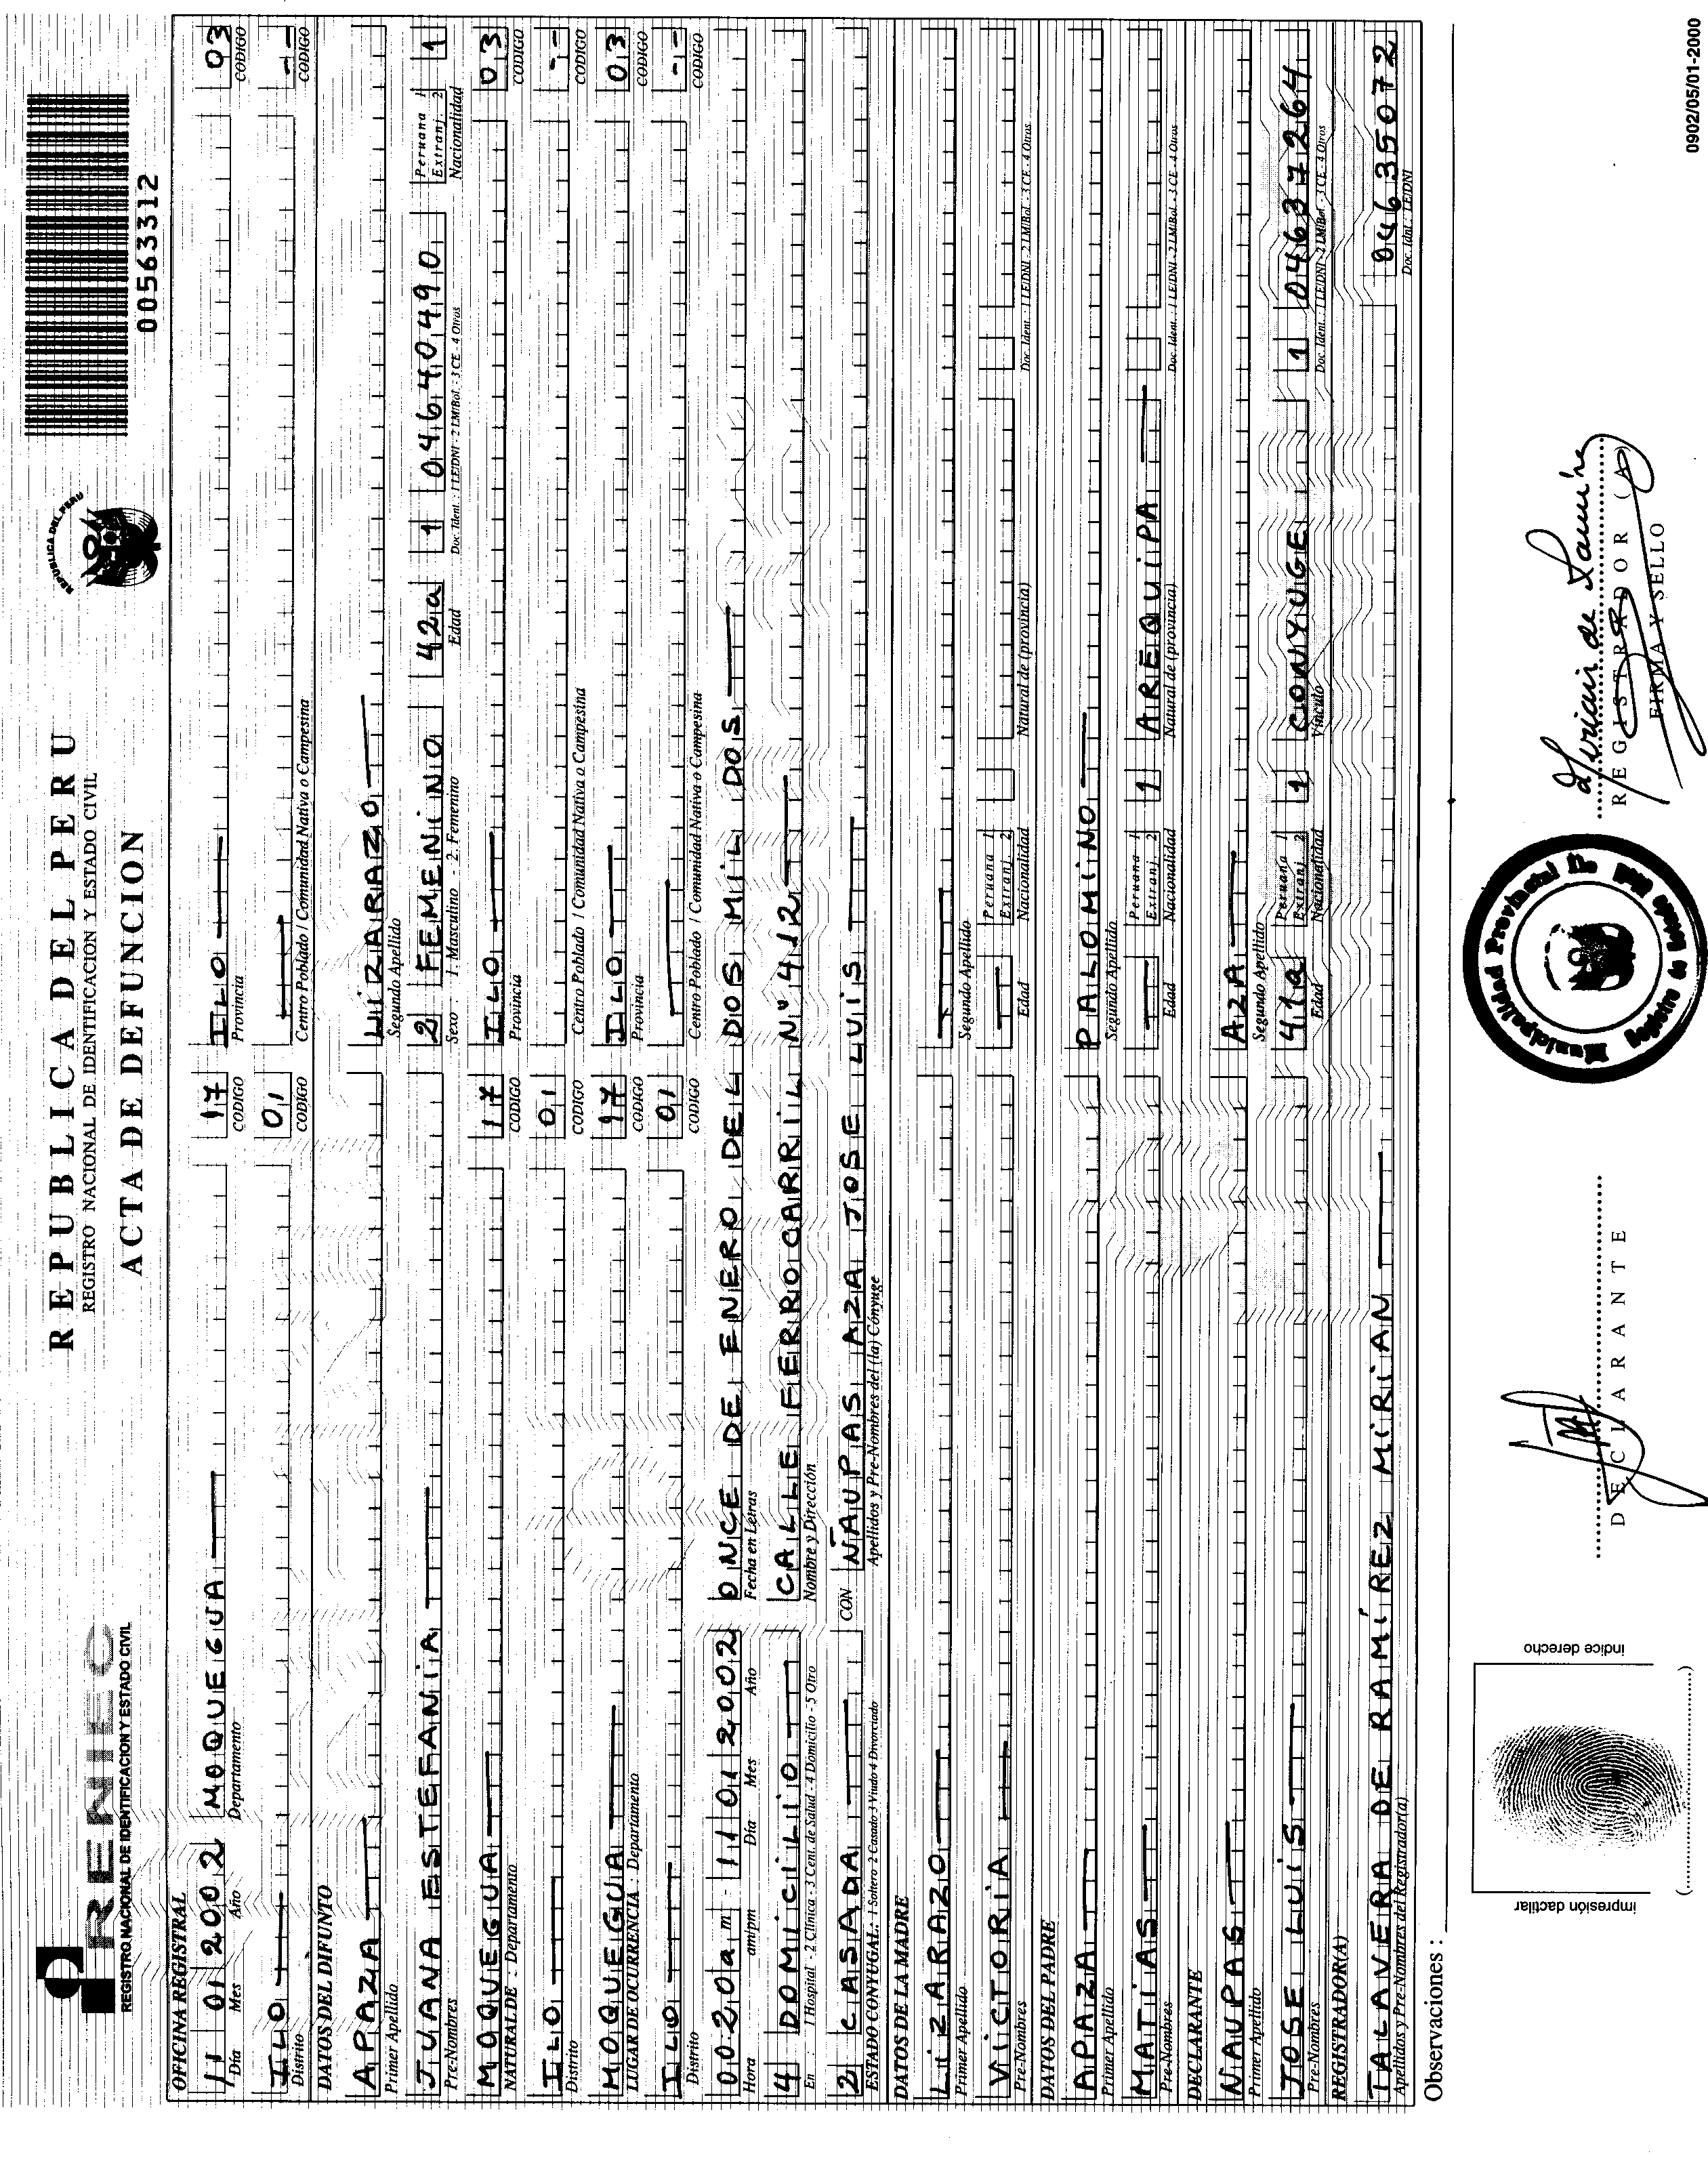 RENIEC
REGISTRO NACIONAL DE IDENTIFICACION Y ESTADO CIVIL
REPUBLICA DEL PERU
REGISTRO NACIONAL DE IDENTIFICACION Y ESTADO CIVIL
ACTA DE DEFUNCION
REPUBLICA DEL PERU
00563312
OFICINA REGISTRAL
11 01 2002 MOQUEGUA 17 ILO 03
Día Mes Año Departamento CODIGO Provincia CODIGO
ILO 01 --
Distrito CODIGO Centro Poblado / Comunidad Nativa o Campesina CODIGO
DATOS DEL DIFUNTO
APAZA LIZARAZO
Primer Apellido Segundo Apellido
JUANA ESTEFANIA 2 FEMENINO 42a 1 04640490 Peruana 1 Extranj. 2 1
Pre-Nombres Sexo : 1- Masculino - 2. Femenino Edad Doc. Ident. : 1 LE/DNI - 2 LM/Bol. - 3 CE - 4 Otros Nacionalidad
MOQUEGUA 17 ILO 03
NATURAL DE : Departamento CODIGO Provincia CODIGO
ILO 01 --
Distrito CODIGO Centro Poblado / Comunidad Nativa o Campesina CODIGO
MOQUEGUA 17 ILO 03
LUGAR DE OCURRENCIA : Departamento CODIGO Provincia CODIGO
ILO 01 --
Distrito CODIGO Centro Poblado / Comunidad Nativa o Campesina CODIGO
0020am - 11 01 2002 ONCE DE ENERO DEL DOS MIL DOS
Hora am/pm Día Mes Año Fecha en Letras
4 DOMICILIO CALLE FERROCARRIL Nº 412
En : 1 Hospital - 2 Clínica - 3 Cent. de Salud - 4 Domicilio - 5 Otro Nombre y Dirección
2 CASADA CON ÑAUPAS AZA JOSE LUIS
ESTADO CONYUGAL: 1 Soltero 2 Casado 3 Viudo 4 Divorciado Apellidos y Pre-Nombres del (la) Cónyuge
DATOS DE LA MADRE
LIZARAZO
Primer Apellido Segundo Apellido
VICTORIA Peruana 1 Extranj. 2
Pre-Nombres Edad Nacionalidad Natural de (provincia) Doc. Ident. : 1 LE/DNI - 2 LM/Bol. - 3 CE - 4 Otros
DATOS DEL PADRE
APAZA PALOMINO
Primer Apellido Segundo Apellido
MATIAS Peruana 1 Extranj. 2 1 AREQUIPA
Pre-Nombres Edad Nacionalidad Natural de (provincia) Doc. Ident. : 1 LE/DNI - 2 LM/Bol. - 3 CE - 4 Otros
DECLARANTE
ÑAUPAS AZA
Primer Apellido Segundo Apellido
JOSE LUIS 41a Peruana 1 Extranj. 2 1 CONYUGE 1 04637264
Pre-Nombres Edad Nacionalidad Vínculo Doc. Ident. : 1 LE/DNI - 2 LM/Bol. - 3 CE - 4 Otros
REGISTRADOR(A)
TALAVERA DE RAMIREZ MIRIAN 04635072
Apellidos y Pre-Nombres del Registrador(a) Doc. Idnt : LE/DNI
Observaciones :
impresión dactilar
indice derecho
DECLARANTE
Municipalidad Provincial
REGISTRADOR (A)
FIRMA Y SELLO
0902/05/01-2000